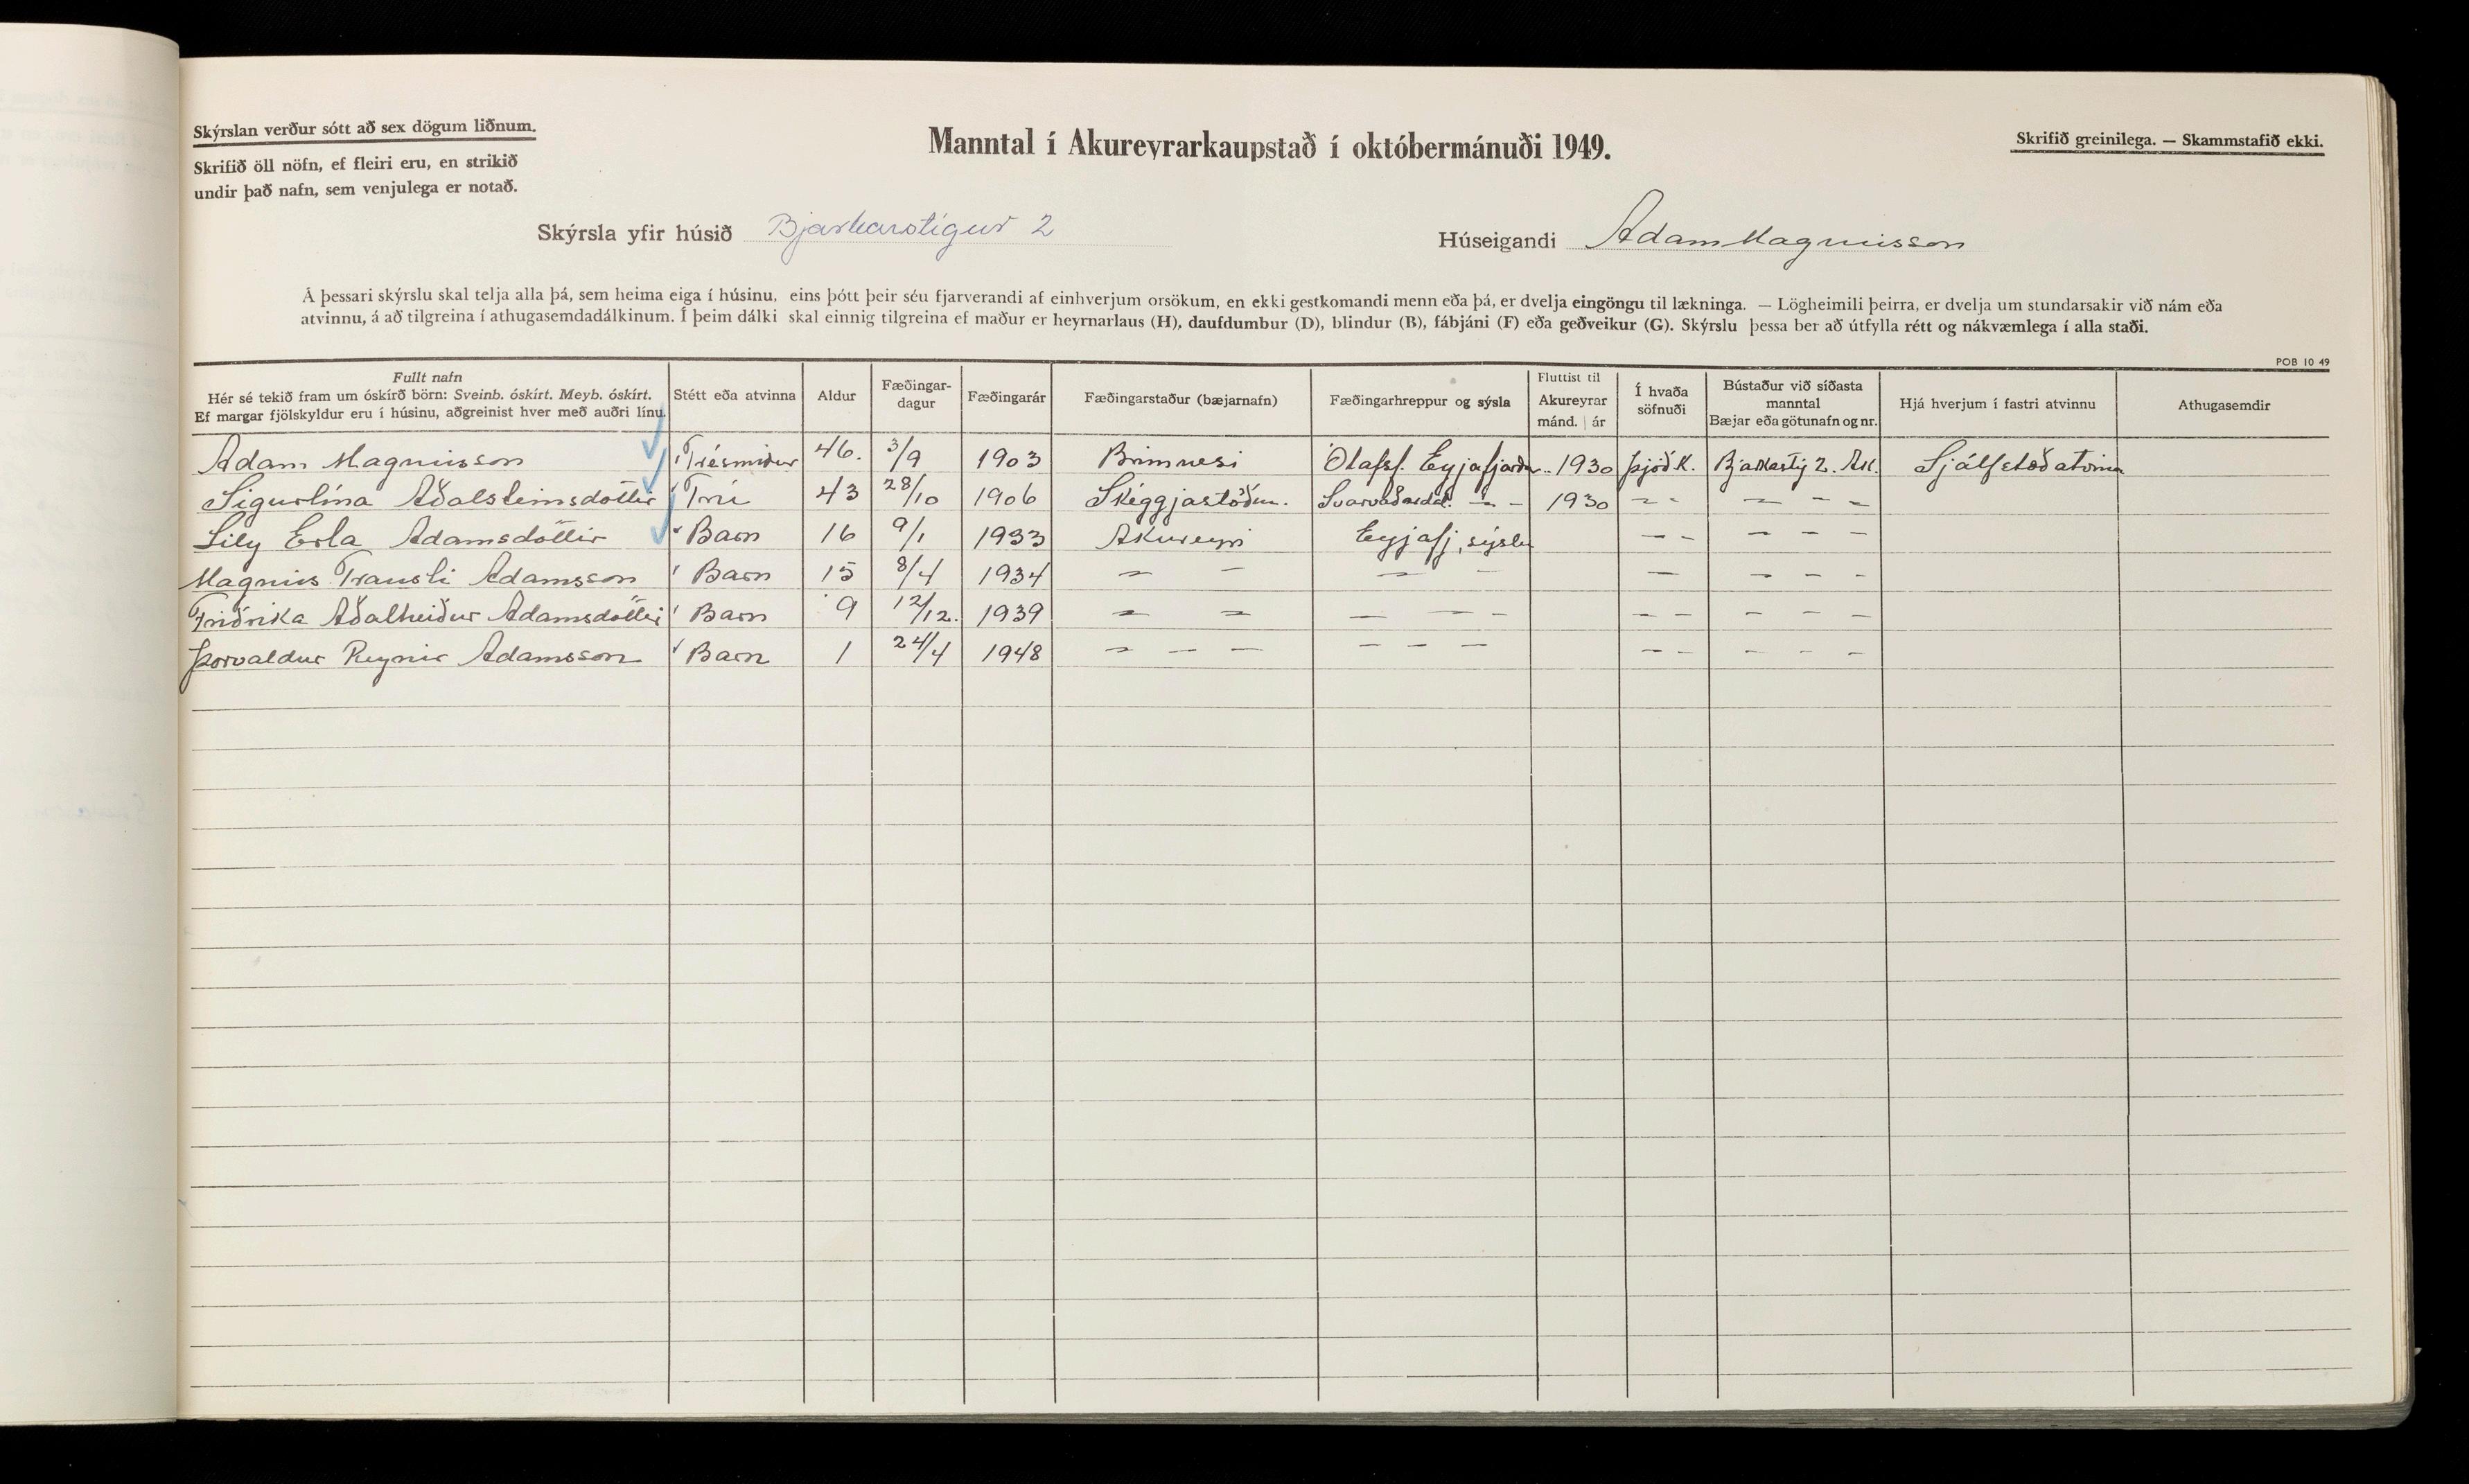 Skýrslan verður sótt að sex dögum liðnum.
Skrifið öll nöfn, ef fleiri eru, en strikið
undir það nafn, sem venjulega er notað.
Manntal í Akureyrarkaupstað í októbermánuði 1949.
Skrifið greinilega. — Skammstafið ekki.
Skýrsla yfir húsið Bjarkarstígur 2
Húseigandi Adam Magnússon
Á þessari skýrslu skal telja alla þá, sem heima eiga í húsinu, eins þótt þeir séu fjarverandi af einhverjum orsökum, en ekki gestkomandi menn eða þá, er dvelja eingöngu til lækninga. — Lögheimili þeirra, er dvelja um stundarsakir við nám eða
atvinnu, á að tilgreina í athugasemdadálkinum. Í þeim dálki skal einnig tilgreina ef maður er heyrnarlaus (H), daufdumbur (D), blindur (B), fábjáni (F) eða geðveikur (G). Skýrslu þessa ber að útfylla rétt og nákvæmlega í alla staði.
POB 10 49
Fullt nafn
Hér sé tekið fram um óskírð börn: Sveinb. óskírt. Meyb. óskírt.
Ef margar fjölskyldur eru í húsinu, aðgreinist hver með auðri línu.
Stétt eða atvinna
Aldur
Fæðingar-
dagur
Fæðingarár
Fæðingarstaður (bæjarnafn)
Fæðingarhreppur og sýsla
Fluttist til
Akureyrar
mánd. | ár
Í hvaða
söfnuði
Bústaður við síðasta
manntal
Bæjar eða götunafn og nr.
Hjá hverjum í fastri atvinnu
Athugasemdir
Adam Magnússon Trésmiður 46. 3/9 1903 Brimnesi Ólafsf. Eyjafjarðar. 1930 Þjóðk. Bjarkastíg 2. Ak. Sjálfstæð atvinna
Sigurlína Aðalsteinsdóttir Frú 43 28/10 1906 Skeggjastöðum. Svarvaðardal. — - 1930 - - — - -
Lily Erla Adamsdóttir Barn 16 9/1 1933 Akureyri Eyjafj. sýslu — - — - —
Magnús Trausti Adamsson Barn 15 8/4 1934 — - — - — - - -
Friðrika Aðalheiður Adamsdóttir Barn 9 12/12. 1939 — — — — - - - - - -
Þorvaldur Reynir Adamsson Barn 1 24/4 1948 - — — - - - - - - - -